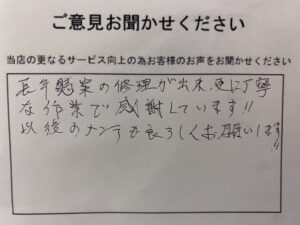 ご意見お聞かせください
当店の更なるサービス向上の為お客様のお声をお聞かせください
長年懸案の修理が出来、更に丁寧
な作業で感謝しています!!
以後のメンテも宜しくお願いします!!